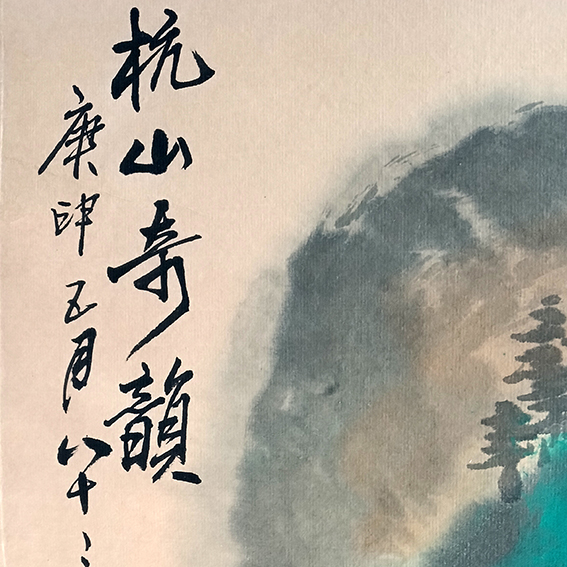 杭山奇韻
庚申五月八十